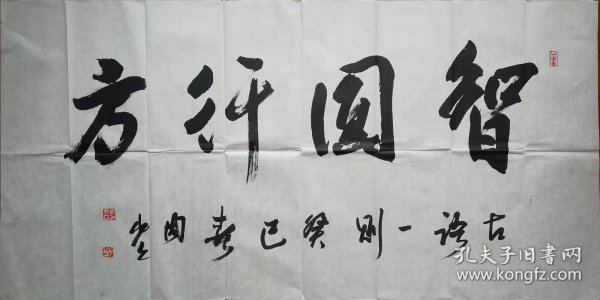 智圆行方
古语一则癸巳春月
孔夫子旧书网
www.kongfz.com